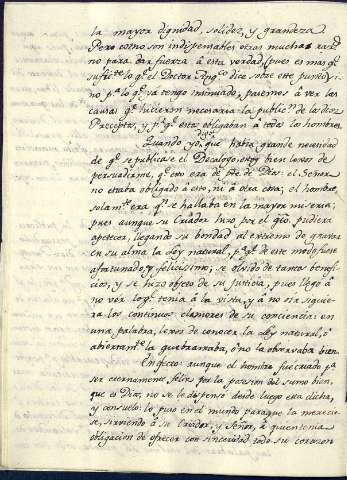 la mayor dignidad, solidez, y grandeza
Pero como son indispensables otras muchas raz.s
no para dar fuerza â esta verdad, (pues es mas q.e
sufic.te lo q.e el Doctor Ang.co dice sobre este punto) si
no p.r lo q.e va tengo insinuado, pasemos â ver las
causas q.e hicieron necesaria la public.on de los diez
Preceptos, y p.r q.e estos obligaban â todos los hombres.
Quando yo digo, que habia grande necesidad
de q.e se publicase el Decalogo, estoy bien lexos de
persuadirme, q.e esto era de p.te de Dios: el Señor
no estaba obligado â esto, ni â otra cosa; el hombre
solam.te era q.n se hallaba en la mayor miseria;
pues aunque su Criador hizo por el q.to pudiera
apetecer, llegando su bondad al extremo de gravar
en su alma la Ley natural, p.a q.e de este modo fuese
afortunado, y felicisimo; se olvidó de tantos benefi-
cios, y se hizo objeto de su Justicia, pues llegó â
no ver lo q.e tenia â la vista, y â no oir siquie-
ra los continuos clamores de su conciencia: en
una palabra, lexos de conocer la Ley natural, ô
abiertam.te la quebrantaba, ô no la observaba bien.
En efecto: aunque el hombre fue criado p.a
ser eternamente feliz por la posesion del sumo bien,
que es Dios, no se le dispensó desde luego esta dicha,
y consuelo: lo puso en el mundo paraque la merecie-
se, sirviendo â su Criador, y Señor, â quien tenia
obligacion de ofrecer con sinceridad todo su corazon